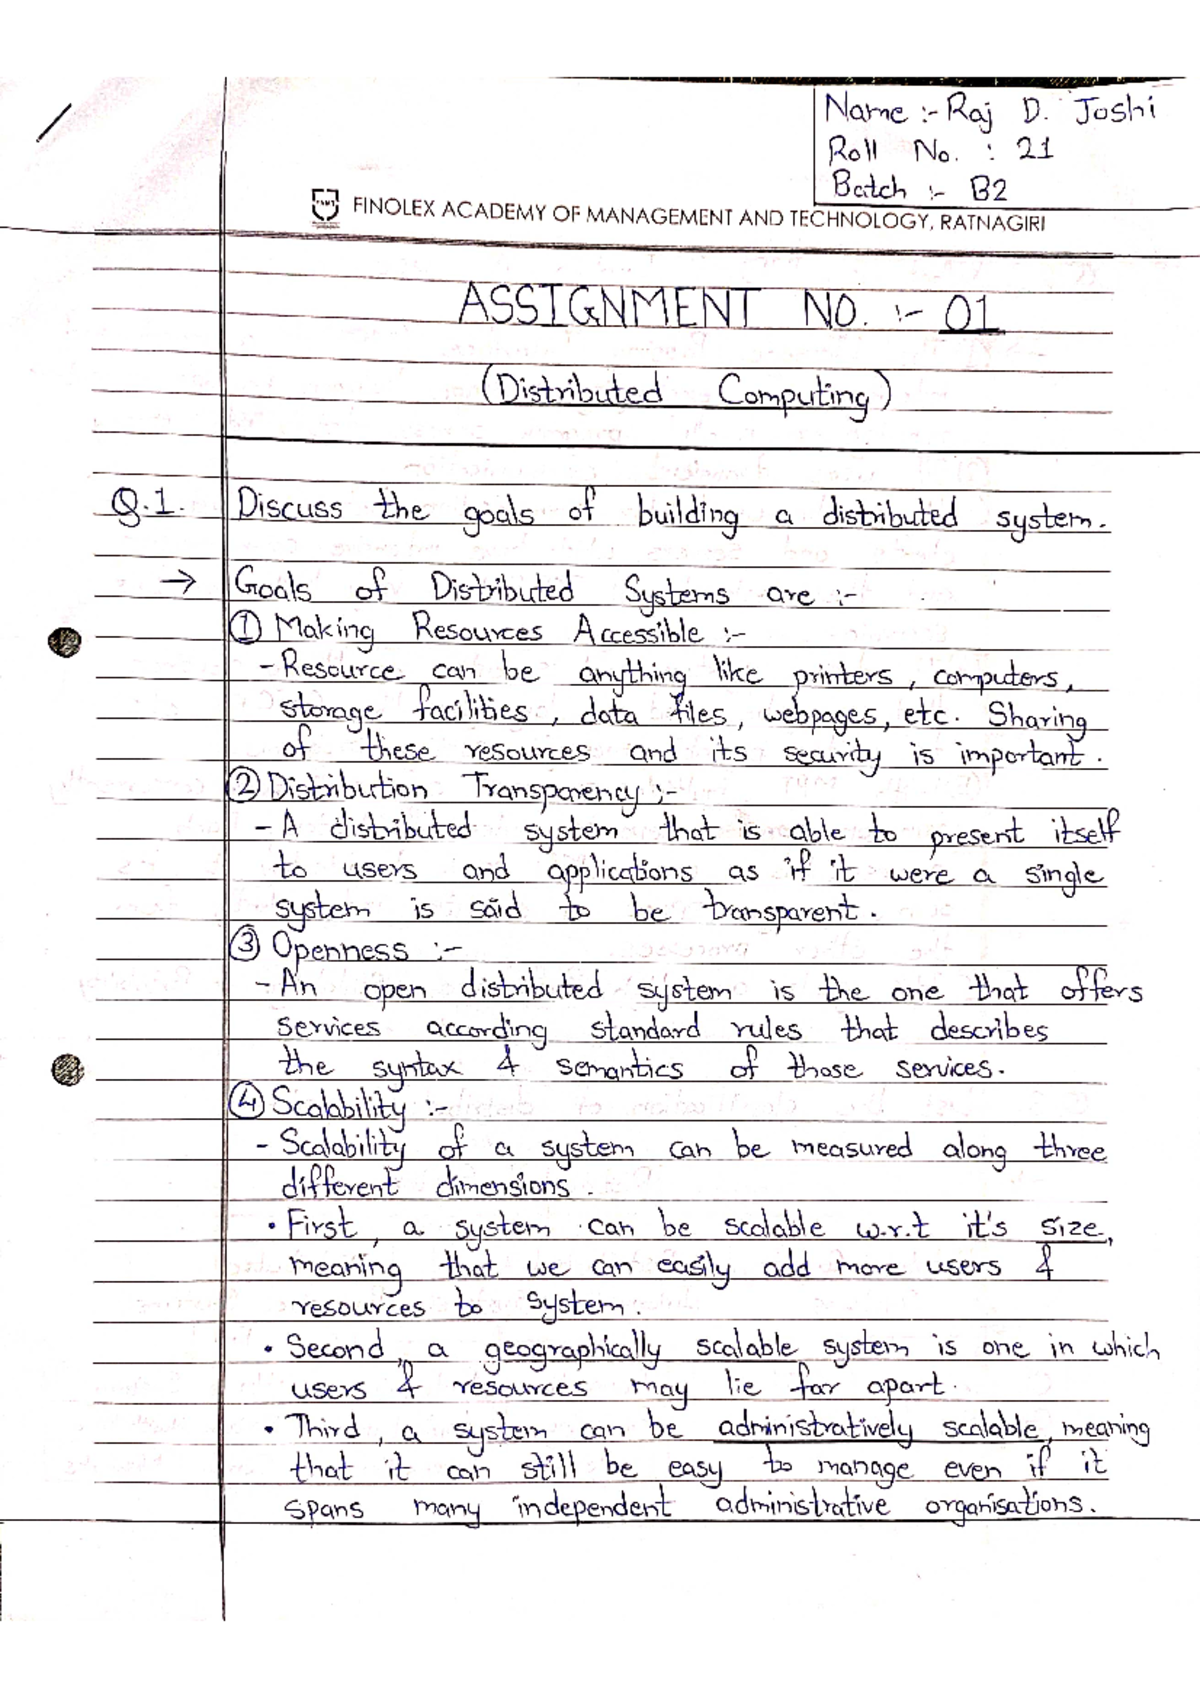 Name :- Raj D. Joshi
Roll No. : 21
Batch :- B2
FINOLEX ACADEMY OF MANAGEMENT AND TECHNOLOGY, RATNAGIRI
ASSIGNMENT NO. :- 01
(Distributed Computing)
Q.1. Discuss the goals of building a distributed system.
→ Goals of Distributed Systems are :-
① Making Resources Accessible :-
- Resource can be anything like printers, computers,
storage facilities, data files, webpages, etc. Sharing
of these resources and its security is important.
② Distribution Transparency :-
- A distributed system that is able to present itself
to users and applications as if it were a single
system is said to be transparent.
③ Openness :-
- An open distributed system is the one that offers
services according standard rules that describes
the syntax & semantics of those services.
④ Scalability :-
- Scalability of a system can be measured along three
different dimensions.
• First, a system can be scalable w.r.t it's size,
meaning that we can easily add more users &
resources to system.
• Second, a geographically scalable system is one in which
users & resources may lie far apart.
• Third, a system can be administratively scalable, meaning
that it can still be easy to manage even if it
spans many independent administrative organisations.